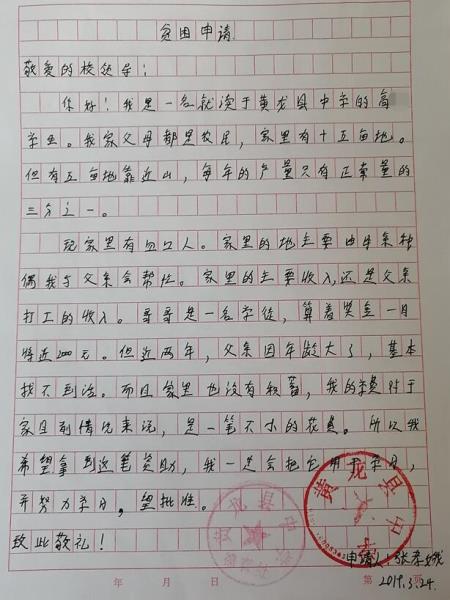 贫困申请
敬爱的校领导:
你好!我是一名就读于黄龙县中学的高
学生。我家父母都是农民,家里有十五亩地。
但有五亩地靠近山,每年的产量只有正常量的
三分之一。
现家里有四口人。家里的地主要由母亲种
偶我与父亲会帮忙。家里的主要收入,还是父亲
打工的收入。哥哥是一名学徒,算着奖金一月
将近2000元。但近两年,父亲因年龄大了,基本
找不到活。而且家里也没有积蓄,我的学费对于
家目前情况来说,是一笔不小的花费。所以我
希望拿到这笔资助,我一定会把它用于学习,
并努力学习,望批准。
致此敬礼!
黄龙县中
申请人:张孝娥
2019.3.24.
年 月 第 页